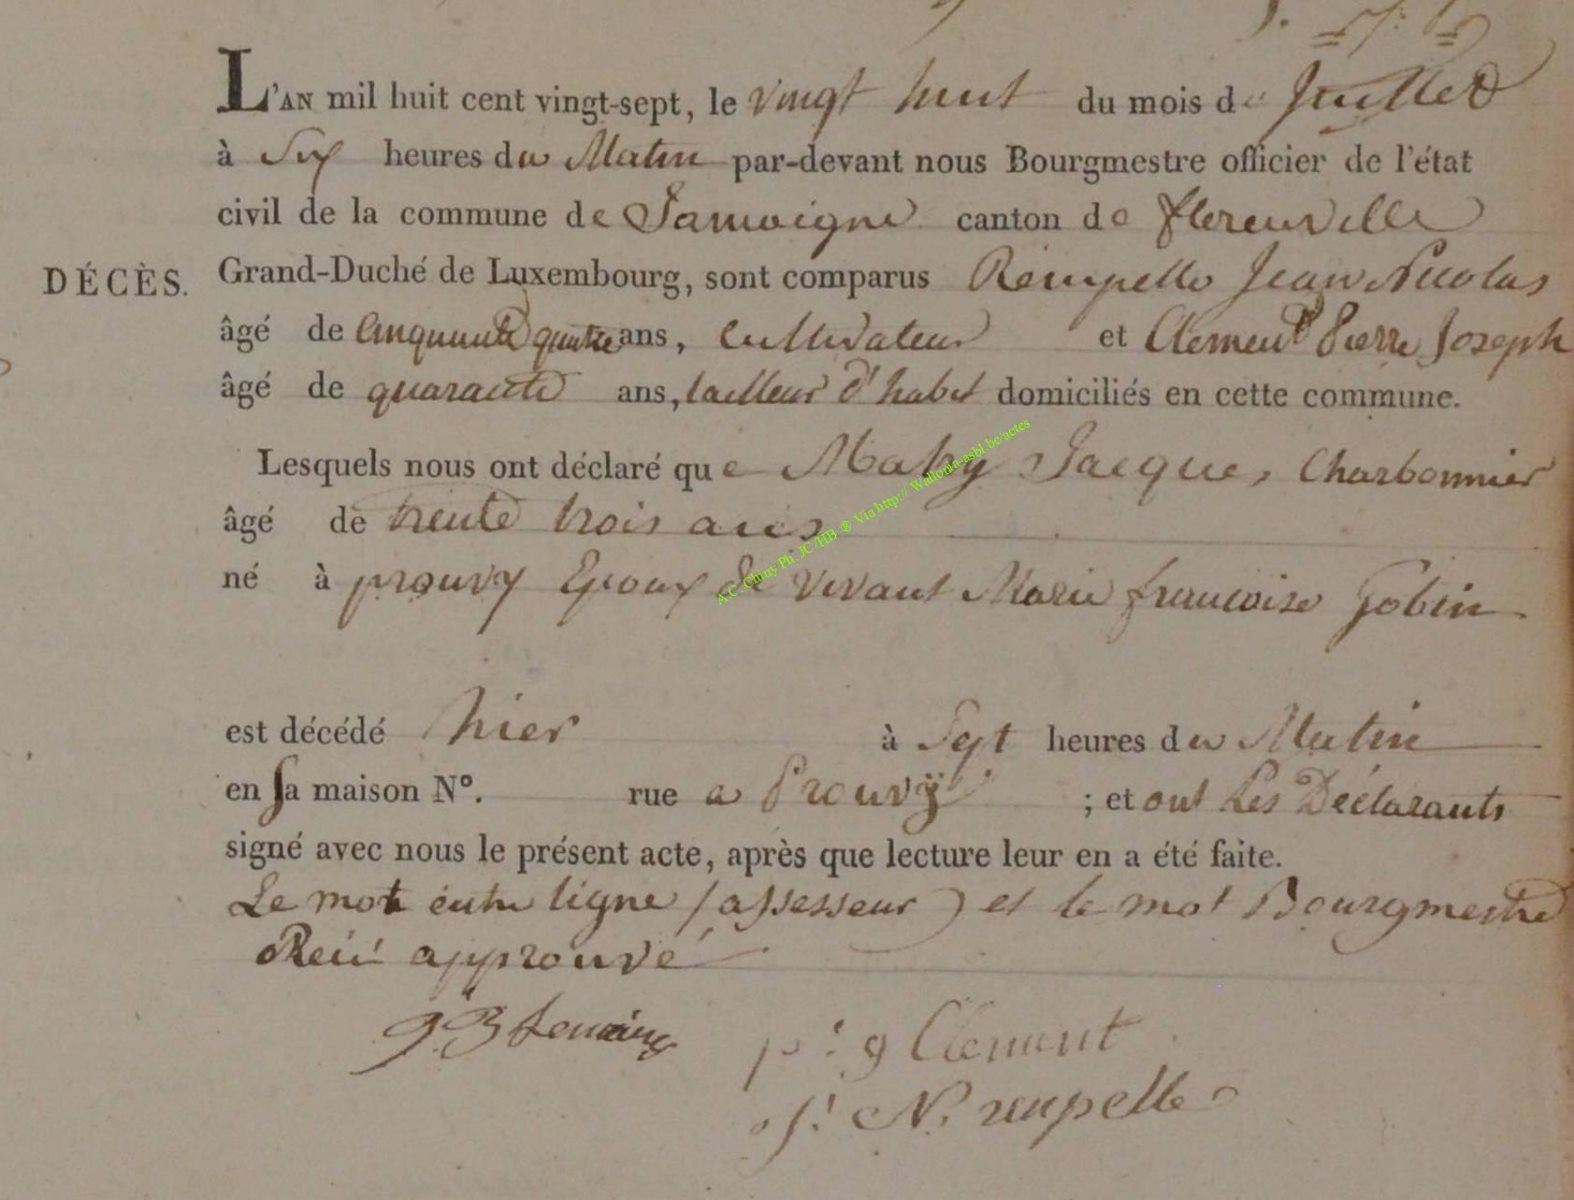 L'AN mil huit cent vingt-sept, le vingt huit du mois de Juillet
à Six heures du Matin par-devant nous Bourgmestre officier de l'état
civil de la commune de Jamoigne canton de florenville
DÉCÈS. Grand-Duché de Luxembourg, sont comparus Rempelle Jean Nicolas
âgé de Cinquante quatre ans, Cultivateur et Clement Pierre Joseph
âgé de quarante ans, tailleur d'habit domiciliés en cette commune.
Lesquels nous ont déclaré que Maby Jacque, Charbonnier
âgé de trente trois ans
né à prouvy Epoux de vivant Marie francoise Gobin
est décédé hier à Sept heures du Matin
en sa maison N°. rue a Prouvÿ ; et ont Les Déclarants
signé avec nous le présent acte, après que lecture leur en a été faite.
Le mot entre ligne (assesseur) et le mot Bourgmestre
approuvé
J B Lemaire
p: j Clement
j: N. rempelle
A.C. Chiny Ph. JC /HB ® Via http:// Wallonia-asbl.be/actes